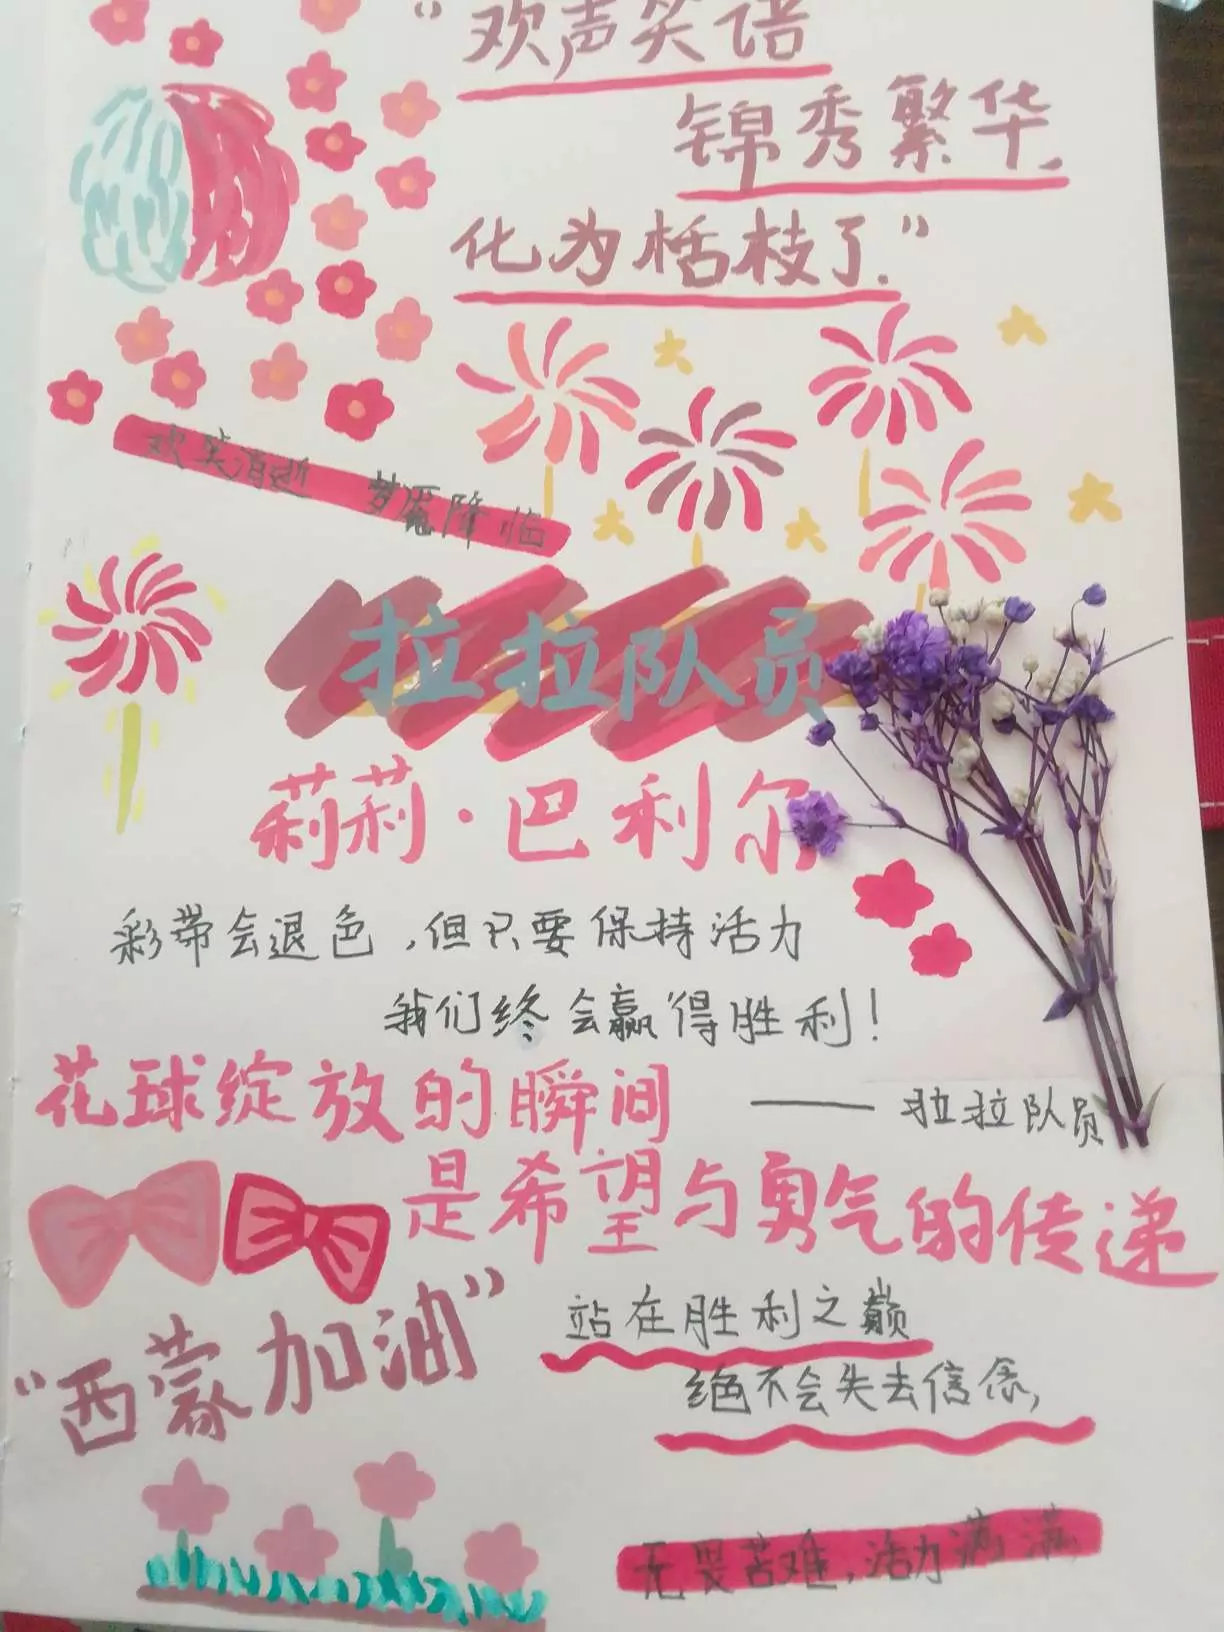 “欢声笑语
锦秀繁华
化为栝枝了.”
欢笑消逝 梦魇降临
拉拉队员
莉莉·巴利尔
彩带会退色,但只要保持活力
我们终会赢得胜利!
——拉拉队员
花球绽放的瞬间
是希望与勇气的传递
“西蒙加油”
站在胜利之巅
绝不会失去信念,
无畏苦难,活力满满